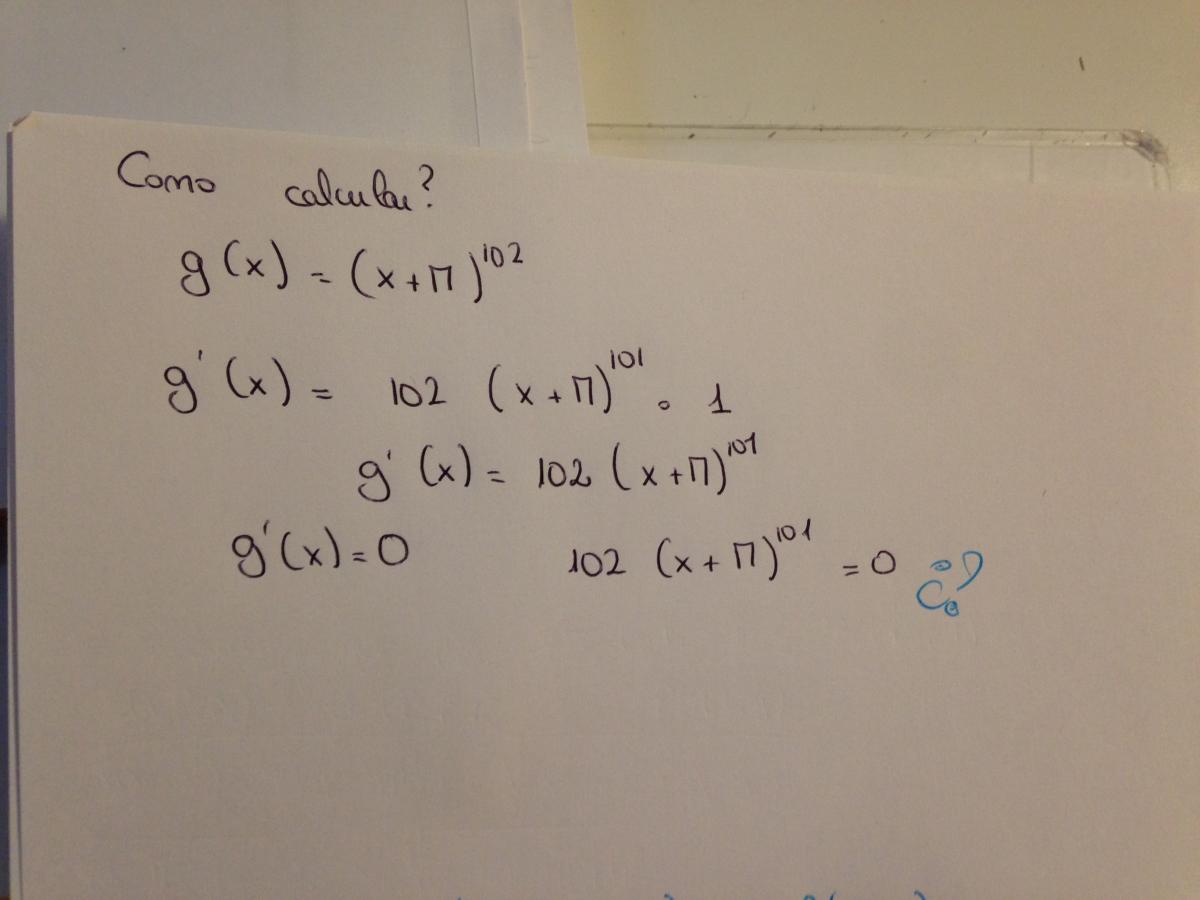 Como calcular?
g(x) = (x+π)^102
g'(x) = 102 (x+π)^101 . 1
g'(x) = 102 (x+π)^101
g'(x) = 0 102 (x+π)^101 = 0